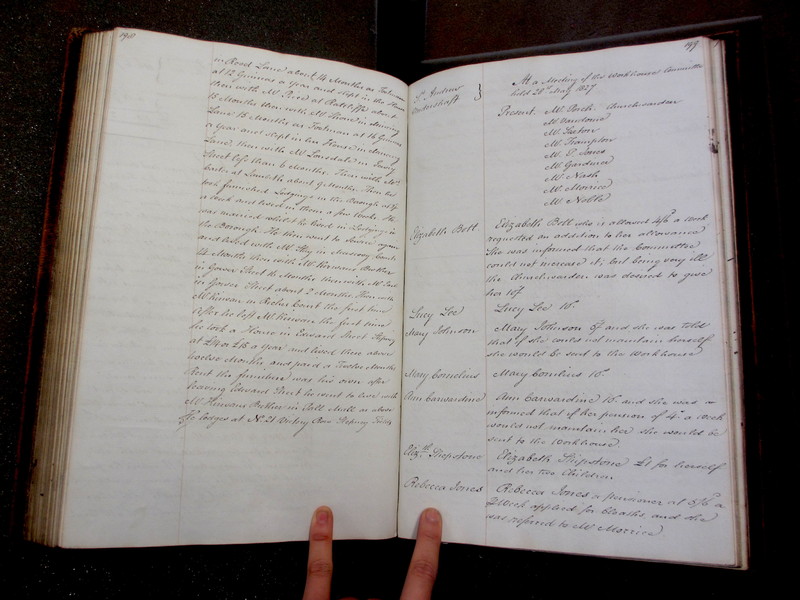 198
in Rood Lane about 14 Months as Footman
at 12 Guineas a year and slept in the House
then with Mr at Ratcliffe about
15 Months then with Mr in Mincing
Lane 18 Months as Footman at 14 Guineas
a year and slept in the House in Mincing
Lane, then with Mr Lonsdale in
Street less than 6 Months. Then with Mr
at Lambeth about 9 Months. Then he
took furnished Lodgings in the Borough at
a week and lived in them a few weeks. He
was married whilst he lived in Lodgings in
the Borough. He then went to Service again
and lived with Mr in Court
14 Months then with Mr Kinnans Brother
in Gower Street 16 Months then with Mr
in Gower Street about 2 Months then with
Mr Kinnan in Court the first time
After he left Mr Kinnan the first time
he took a House in Edward Street Stepney
at £14 or £15 a Year and lived there above
twelve Months, and paid a Twelve Months
and the furniture was his own after
leaving Edward Street he went to live with
Mr Kinnans Brother in Pall Mall as above
He lodges at No. 21 Row Stepney Fields
199
St. Andrew
Undershaft
At a Meeting of the Workhouse Committee
held 28th May 1827
Present Mr Churchwarden
Mr Vandome
Mr Sexton
Mr Thampton
Mr P Jones
Mr Gardner
Mr Nash
Mr Morrice
Mr Noble
Elizabeth Bell
Elizabeth Bell who is allowed 4/6d a Week
requested an addition to her allowance
She was informed that the Committee
could not increase it; but being very ill
the Churchwarden was desired to give
her 10/
Lucy Lee
Lucy Lee 10s.
Mary Johnson
Mary Johnson and she was told
that if she could not maintain herself
she would be sent to the Workhouse
Mary Cornelius
Mary Cornelius 10s.
Ann Carwardine
Ann Carwardine 10s. and she was
informed that if her pension of 4s. a Week
would not maintain her she would be
sent to the Workhouse.
Elizth. Shipstone
Elizabeth Shipstone £1 for herself
and her two Children
Rebecca Jones
Rebecca Jones a pensioner at 5/6d a
Week applied for Cloaths and she
was referred to Mr Morrice